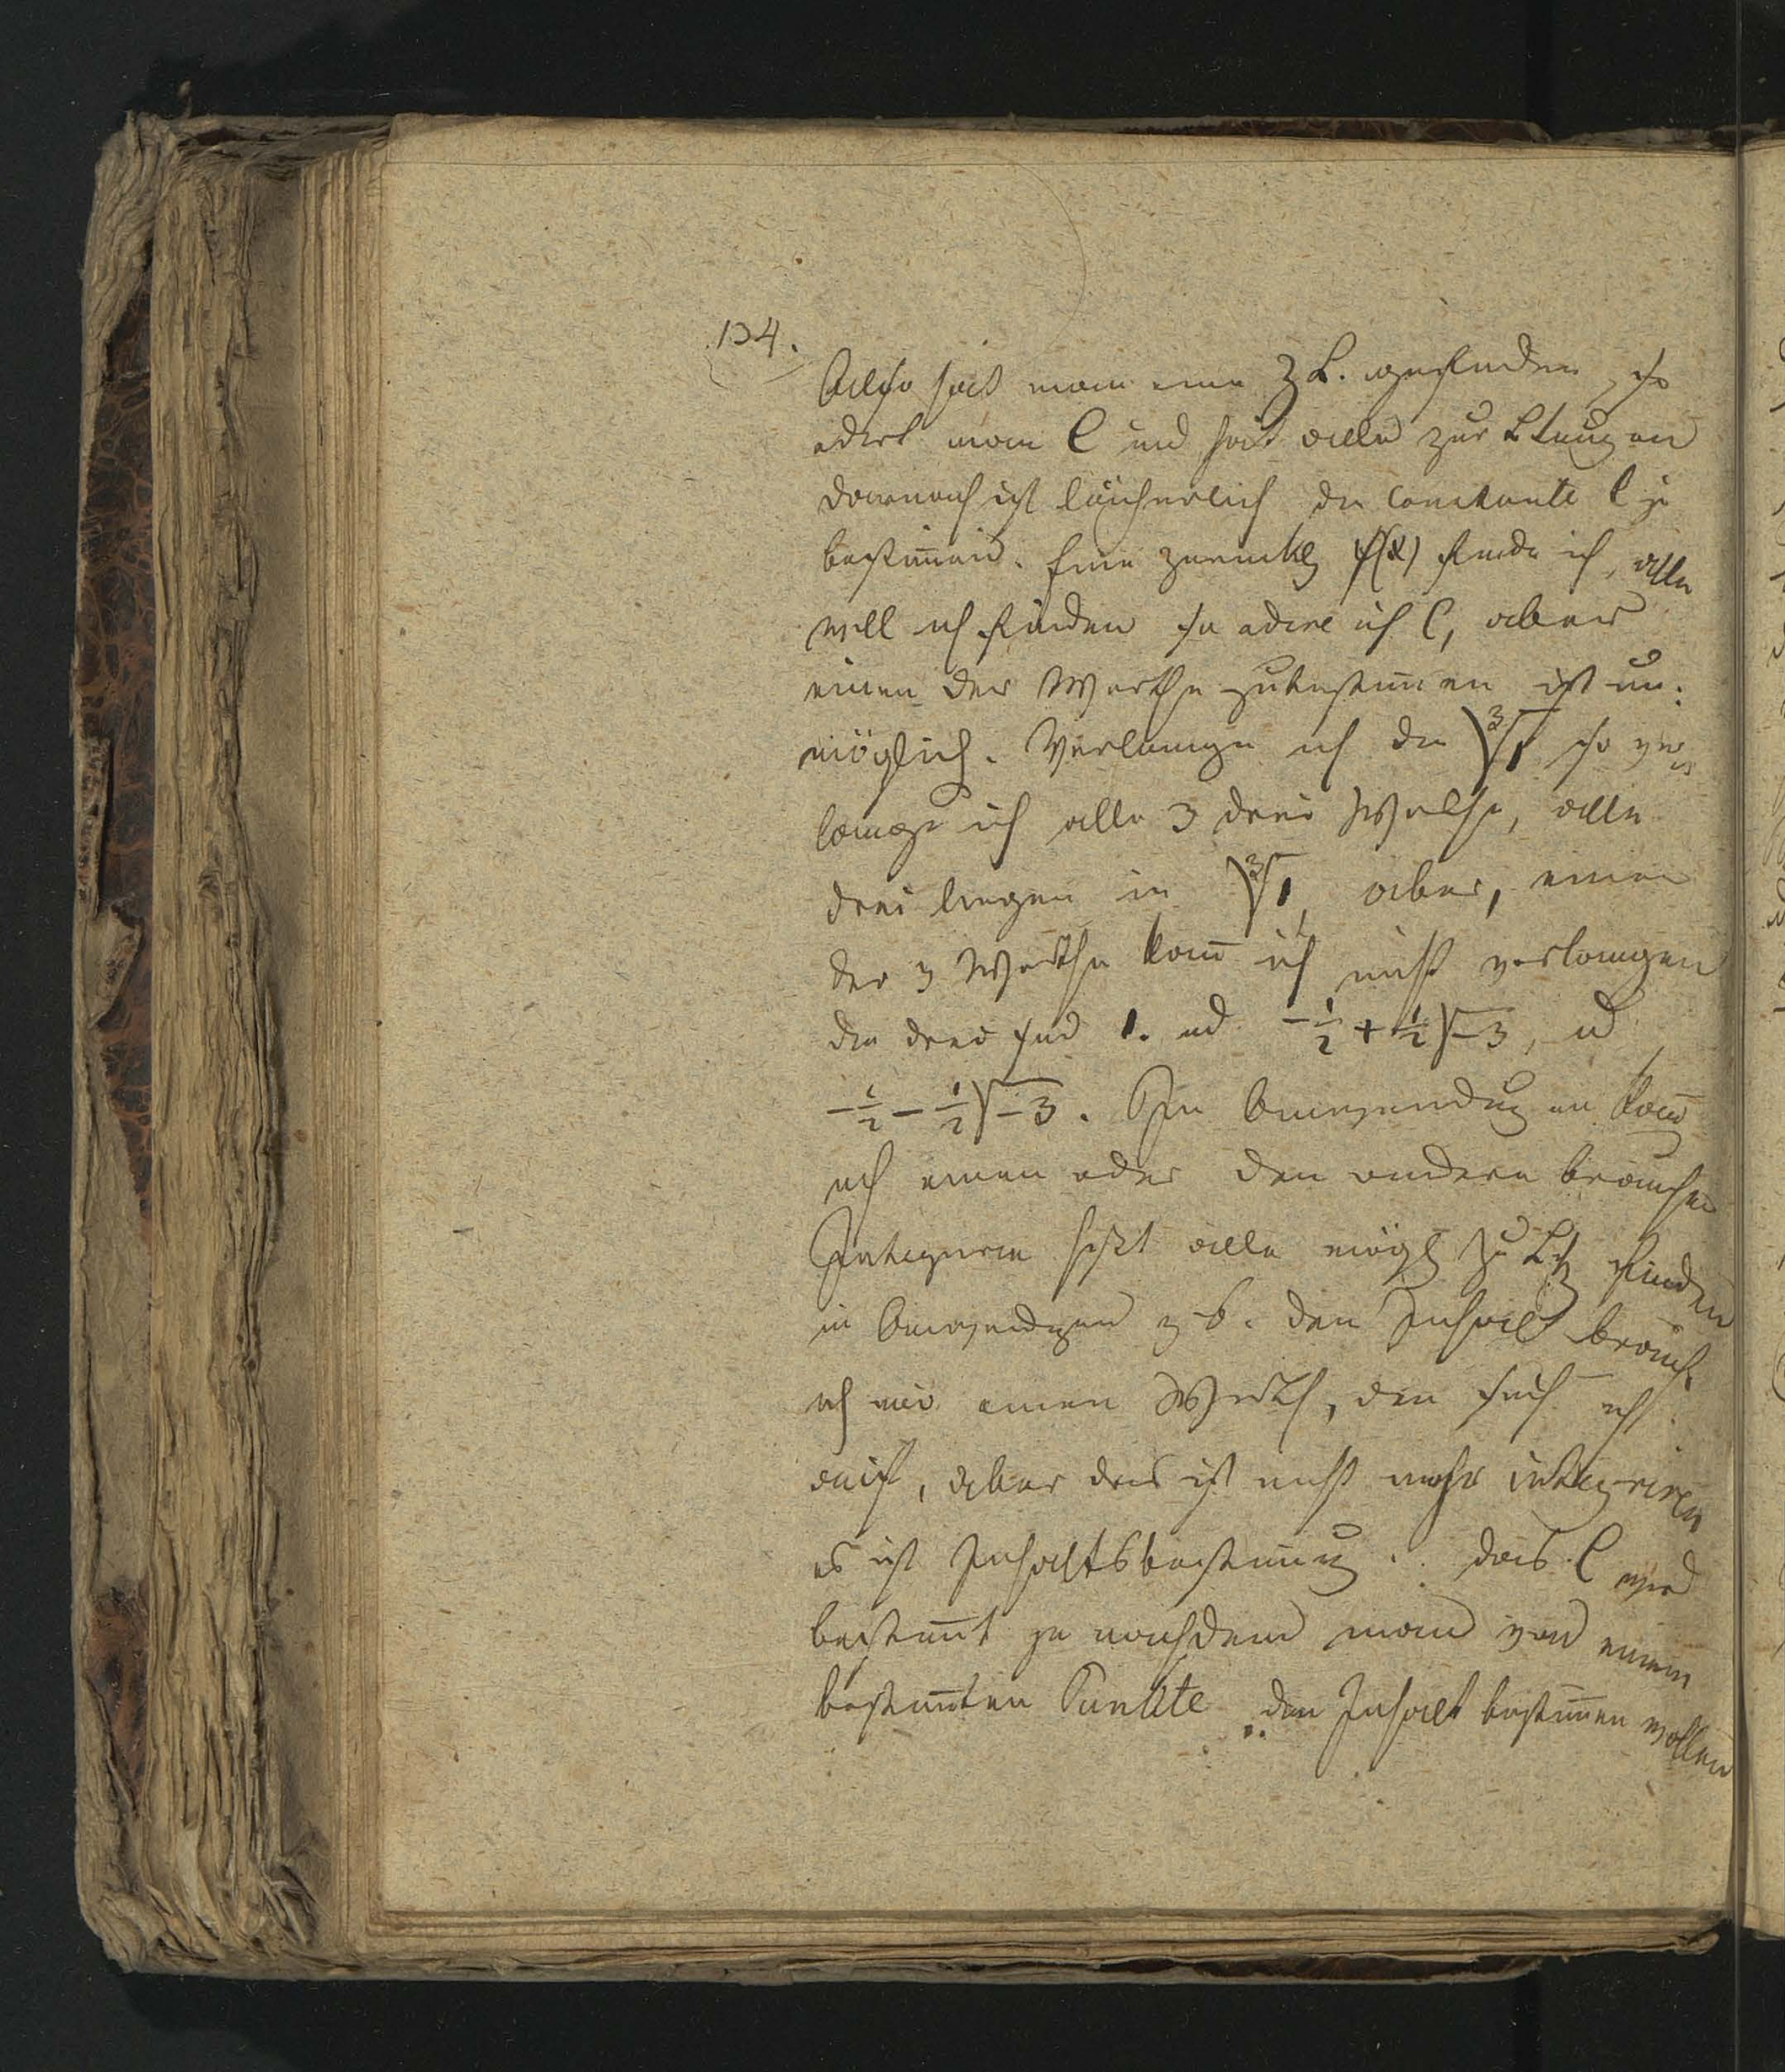 134.
Also hat man eine Z L. gefunden, so
adirt man C und hat alle zurLtung en
darnach ist lächerlich die Constante C zu
bestim̄en. Eine zurückltg f(x) finde ich, alle
will ich finden so adire ich C, aber
einen der Werthe zubestim̄en ist un:
möglich. Verlange ich die ∛1 so ver
lange ich alle 3 drei Werthe, alle
drei liegen in ∛1, aber, einen
der 3 Werthe kan̄ ich nicht verlangen
die drei sind 1. ud -½+½√-3, ud
-½-½√-3. In Anwendung en kan̄
ich einen oder den andern brauchen
Integriren heißt alle mögl zu Ltg finden
in Anwendgen z b. den Inhalt brauch
ich nur einen Werth, den such ich
auf, aber das ist nicht mehr integriren
es ist Inhaltsbestim̄ug. das C wird
bestim̄t je nachdem man von einem
bestim̄ten Punkte den Inhalt bestim̄en wollen